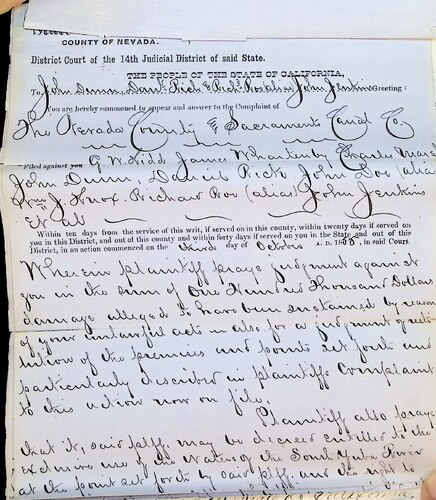 COUNTY OF NEVADA.
District Court of the 14th Judicial District of said State.
THE PEOPLE OF THE STATE OF CALIFORNIA,
To John Dunn, Danl. Rich & Rich. Roe alias John Jenkins Greeting:
You are hereby summoned to appear and answer to the Complaint of
The Nevada County & Sacramento Canal Co.
Filed against you G. W. Kidd James Whartenby Charles Marsh
John Dunn Daniel Rich John Doe (alias
Wm J. Knox. Richard Roe (alias) John Jenkins
Et als
Within ten days from the service of this writ, if served on you in this county, within twenty days if served on
you in this District, and out of this county and within forty days if served on you in the State and out of this
District, in an action commenced on the third day of October A. D. 1858, in said Court.
Wherein plaintiff prays judgment against
you in the sum of One Hundred Thousand Dollars
damage alleged to have been sustained by reason
of your unlawful acts &
also for a judgment of resti-
tution of the premises and points set forth and
particularly described in plaintiffs Complaint
to this action now on file.
Plaintiff also prays
that it, said plff. may be decreed entitled to the
exclusive use of the waters of the South Yuba River
at the point set forth by said plff. and the right to